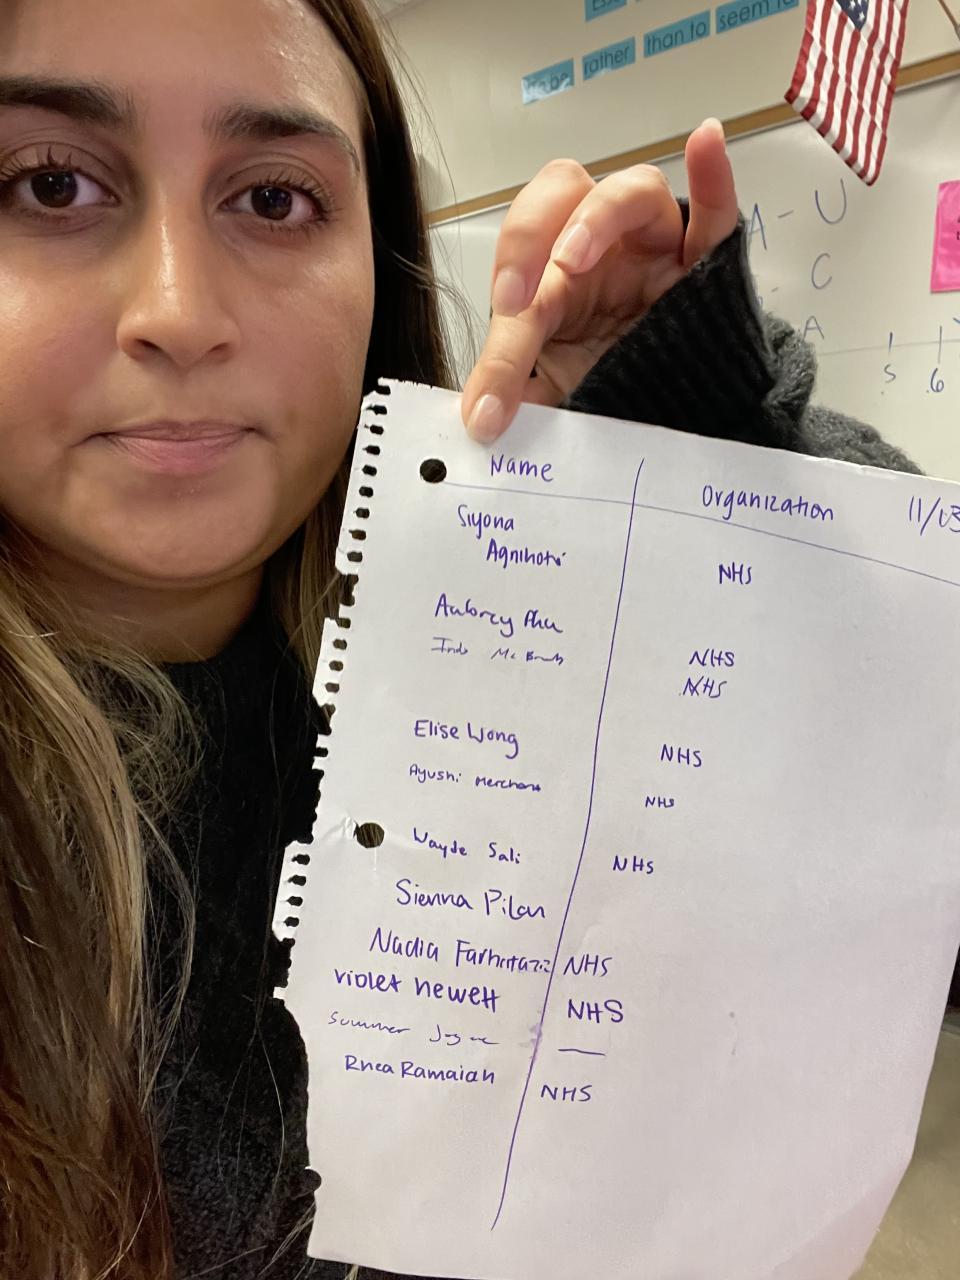 to be rather than to seem to
A - U
C
A
5 6
Name Organization 11/03
Siyona
Agnihotri NHS
Aubrey Phu NHS
NHS
Elise Wong NHS
Ayushi Merchant NHS
Wayde Sali NHS
Sienna Pilon
Nadia NHS
violet newett NHS
Summer —
Rhea Ramaiah NHS